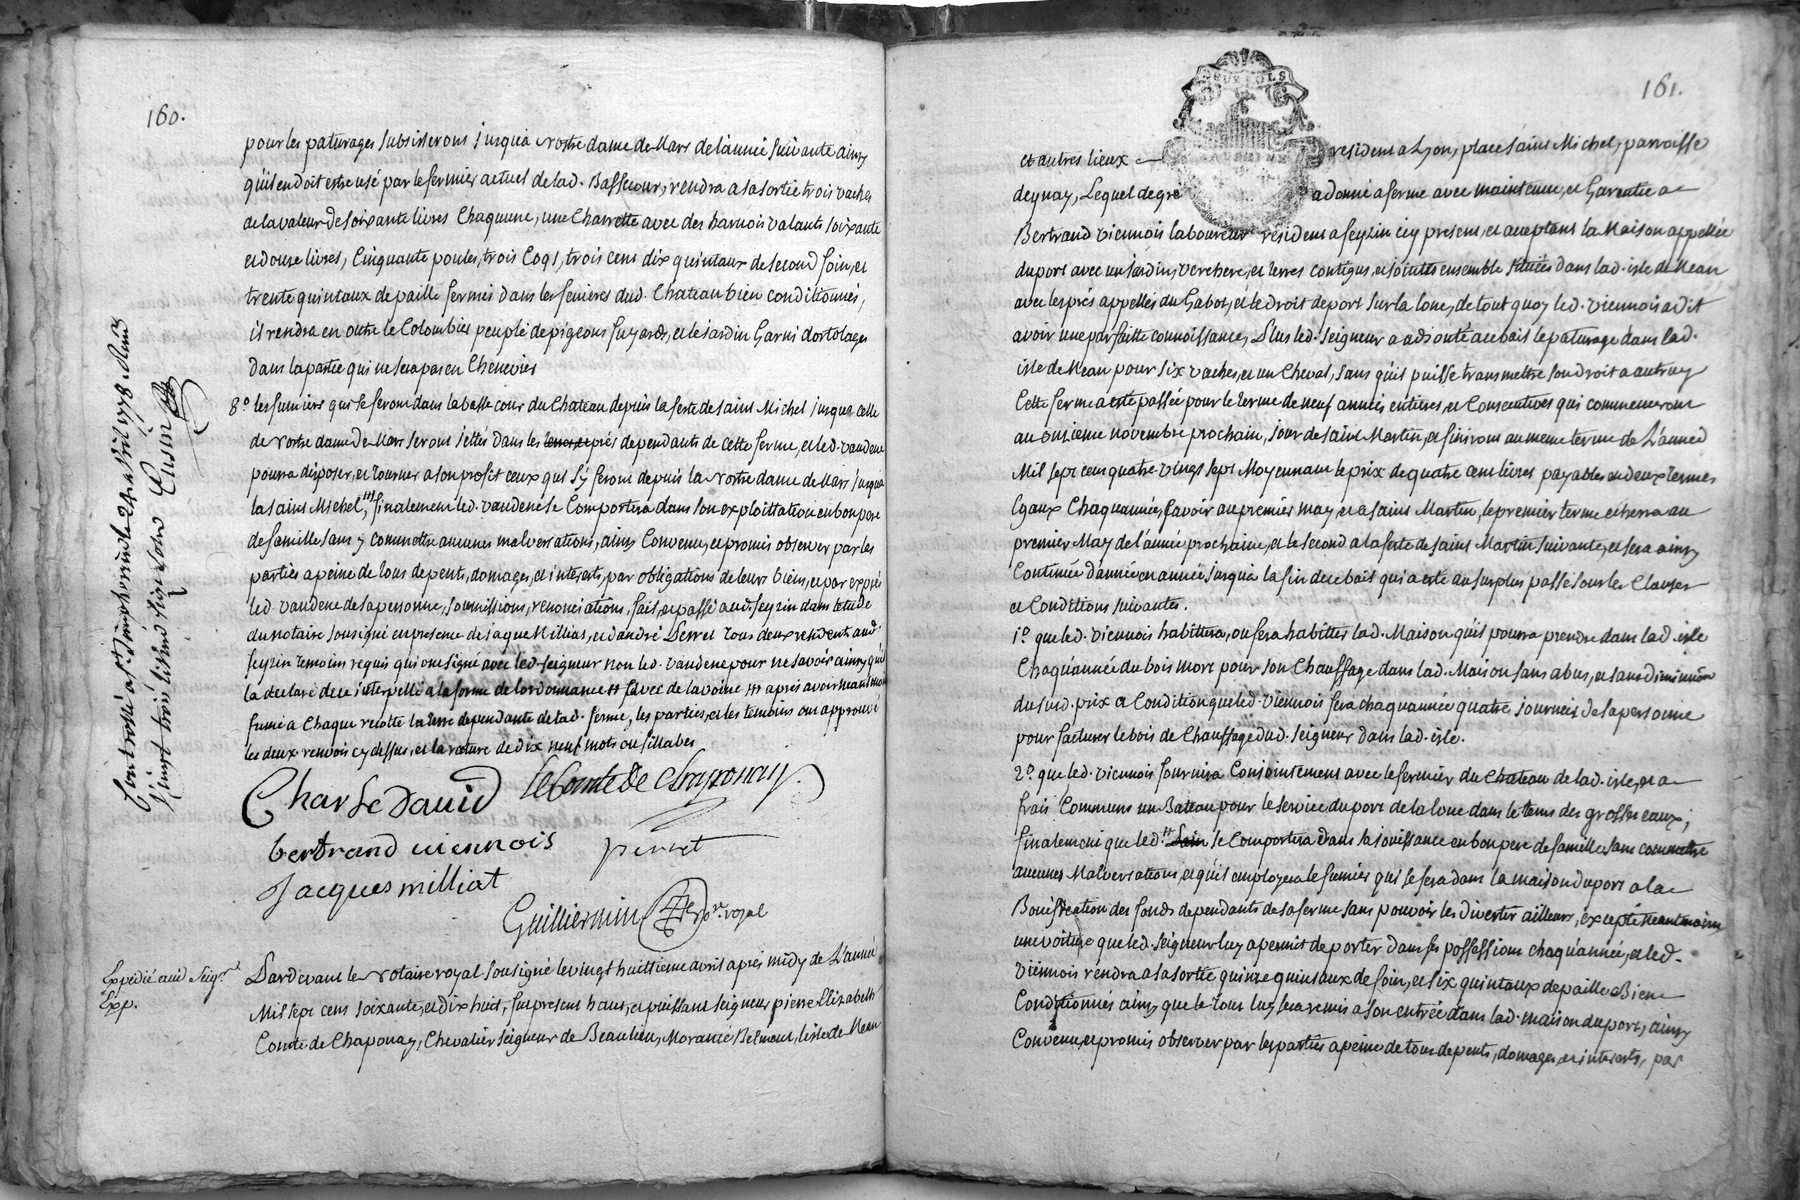 160.
pour les paturages subsisserons jusqu'a nostre dame de Mars de l'année suivante ainsy
qu'il en doit estre usé par le fermier actuel de lad. Bassecour, rendra a sa sortie trois vaches
de la valeur de soixante livres Chaquune, une Charrette avec des harnois valants soixante
et douze livres, Cinquante poules, trois Coqs, trois cens dix quintaux de second foin, et
trente quintaux de paille fermés dans les fenieres dud. Chateau bien conditionnés,
il rendra en outre le Colombier peuplé de pigeons fuyards, et le jardin Garni d'ortolages
dans la partie qui ne sera pas en Chenevier
8.º les fumiers qui se feront dans la basse cour du Chateau depuis la feste de saint Michel jusqua celle
de nostre dame de Mars seront jettés dans les prés dependants de cette ferme, et led. vaudene
pourra disposer, et tourner a son profit ceux qui s'y feront depuis la Nostre dame de Mars jusqua
la saint Michel, finalement led. vaudene se Comportera dans son exploittation en bon pere
de famille sans y commettre aucunes malversations, ainsy Convenu, et promis observer par les
parties a peine de tous depents, domages, et interets, par obligations de leurs biens, et par exprés
led. vaudene de sa personne, soumissions, renonciations, fait, et passé aud. feyzin dans letude
du notaire soussigné en presence de jaque Milliat, et d'andré Perret tous deux residents aud.
feyzin temoins requis qui ont signé avec led. seigneur non led. vaudene pour ne savoir ainsy qu'il
la declaré de ce interpellé a la forme de l'ordonnance # avec de lavoine ## après avoir neantmoins
fumé a Chaque recolte la terre dependante de lad. ferme, les parties, et les temoins ont approuvé
les deux renvois cy dessus, et la rature de dix neuf mots ou sillabes
Charle David le Comte de Chaponay
bertrand viennois perret
Jacques milliat
Guilliermin no.re royal
Controllé a s.t Simphorien le 24 avril 1778. Reçu
Expedié aud. Seig.r
Exp.
Pardevant le Notaire royal soussigné le vingt huitieme avril après midy de L'année
Mil sept cens soixante, et dix huit, fut present haut, et puissant seigneur pierre Elizabeth
Comte de Chaponay, Chevalier seigneur de Beaulieu, Morancé, Belmont, l'isle de Mean
161.
DEUX SOLS
et autres lieux resident a Lyon, place saint Michel, parroisse
deynay, Lequel de gré a donné a ferme avec maintenue, et Garentie a
Bertrand viennois laboureur resident a feyzin icy present, et acceptant la Maison appellée
du port avec un jardin, verchere, et terres contigus, et jointts ensemble situées dans lad. isle de Mean
avec les prés appellés du Gabot, et le droit de port sur la lone, de tout quoy led. viennois a dit
avoir une parfaitte connoissance, Plus led. seigneur a adjouté au bail le paturage dans lad.
isle de Mean pour six vaches, et un Cheval, sans qu'il puisse transmettre son droit a autruy
Cette ferme a esté passée pour le terme de neuf années entieres, et Consecutives qui commenceront
au onzieme novembre prochain, jour de saint Martin, et finiront au meme terme de L'année
Mil sept cens quatre vingt sept Moyennant le prix de quatre cens livres payables en deux termes
Egaux Chaqu'année, savoir au premier may, et a saint Martin, le premier terme echerra au
premier May de l'année prochaine, et le second a la feste de saint Martin suivante, et sera ainsy
Continué d'année en année jusqu'a la fin de ce bail qui a esté au surplus passé sous les Clauses
et Conditions suivantes.
1.º que led. viennois habittera, ou fera habitter lad. Maison qu'il pourra prendre dans lad. isle
Chaqu'année du bois mort pour son Chauffage dans lad. Maison sans abus, et sans diminuõn
du sud. prix a Condition que led. viennois fera chaqu'année quatre journées de sa personne
pour facturer le bois de Chauffage dud. seigneur dans lad. isle.
2.º que led. viennois fournira Conjointement avec le fermier du Chateau de lad. isle, et a
frais Communs un Bateau pour le service du port de la lone dans le tems des grosses eaux;
finalement que led. # se Comportera dans sa jouissance en bon pere de famille sans commettre
aucunes Malversations, et qu'il employera le fumier qui se fera dans la maison du port a la
Bonification des fonds dependants de sa ferme sans pouvoir les divertir ailleurs, excepté neantmoins
une voiture que led. seigneur luy a permit de porter dans ses possessions chaqu'année, et led.
viennois rendra a sa sortie quinze quintaux de foin, et six quintaux de paille Bien
Conditionnés ainsy que le tout luy sera remis a son entrée dans lad. maison du port, ainsy
Convenu, et promis observer par les parties a peine de tous depents, domages, et interests, par